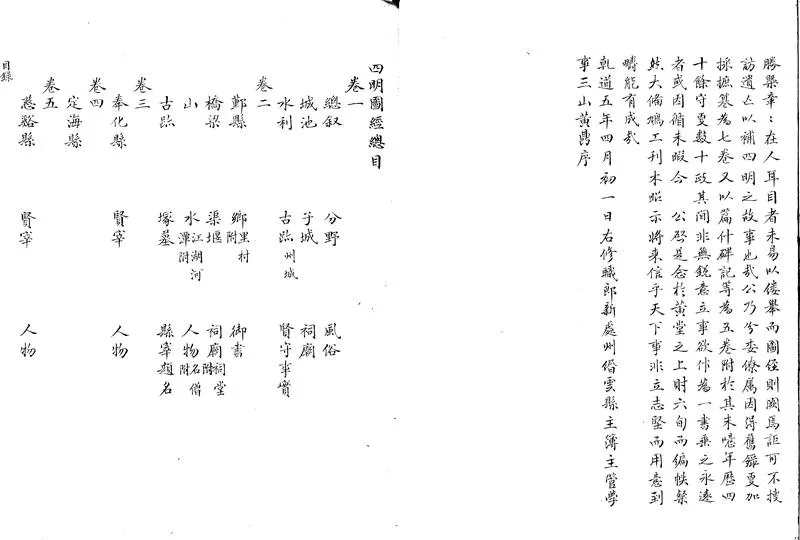 勝槩章〻在人耳目者未易以僂舉而圖經則闕焉詎可不搜
訪遺亡以補四明之故事也哉公乃分委僚属因得舊錄更加
採摭纂為七卷又以篇什碑記等為五卷附於其末噫年歷四
十餘守更數十政其間非無銳意立事欲作為一書垂之永遠
者或因循未暇今 公啓是念於黄堂之上財六旬而編帙粲
然大備鳩工刊本昭示將来信乎天下事非立志堅而用意到
疇能有成哉
乾道五年四月初一日右修職郎新處州縉雲縣主簿主管學
事三山黄鼎序
四明圖經總目
卷一
總叙 分野 風俗
城池 子城 祠廟
水利 古跡州城 賢守事實
卷二
鄞縣 鄉里村附 御書
橋梁 渠堰 祠廟祠堂附
山 水江湖河潭附 人物名僧附
古跡 塚墓 縣宰題名
卷三
奉化縣 賢宰 人物
卷四
定海縣
卷五
慈谿縣 賢宰 人物
目錄